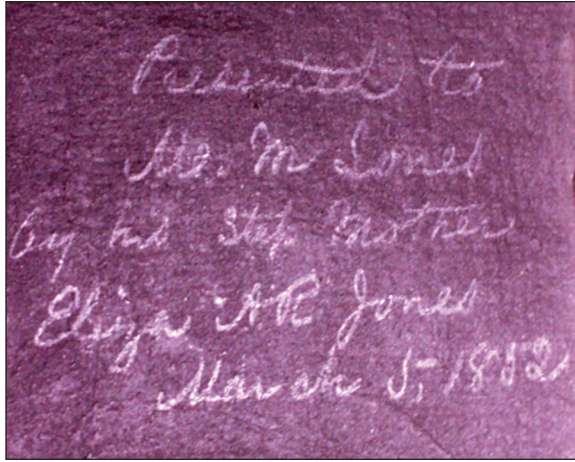 Presented to
M Jones
by his Step Mother
Eliza AR Jones
March 5, 1852